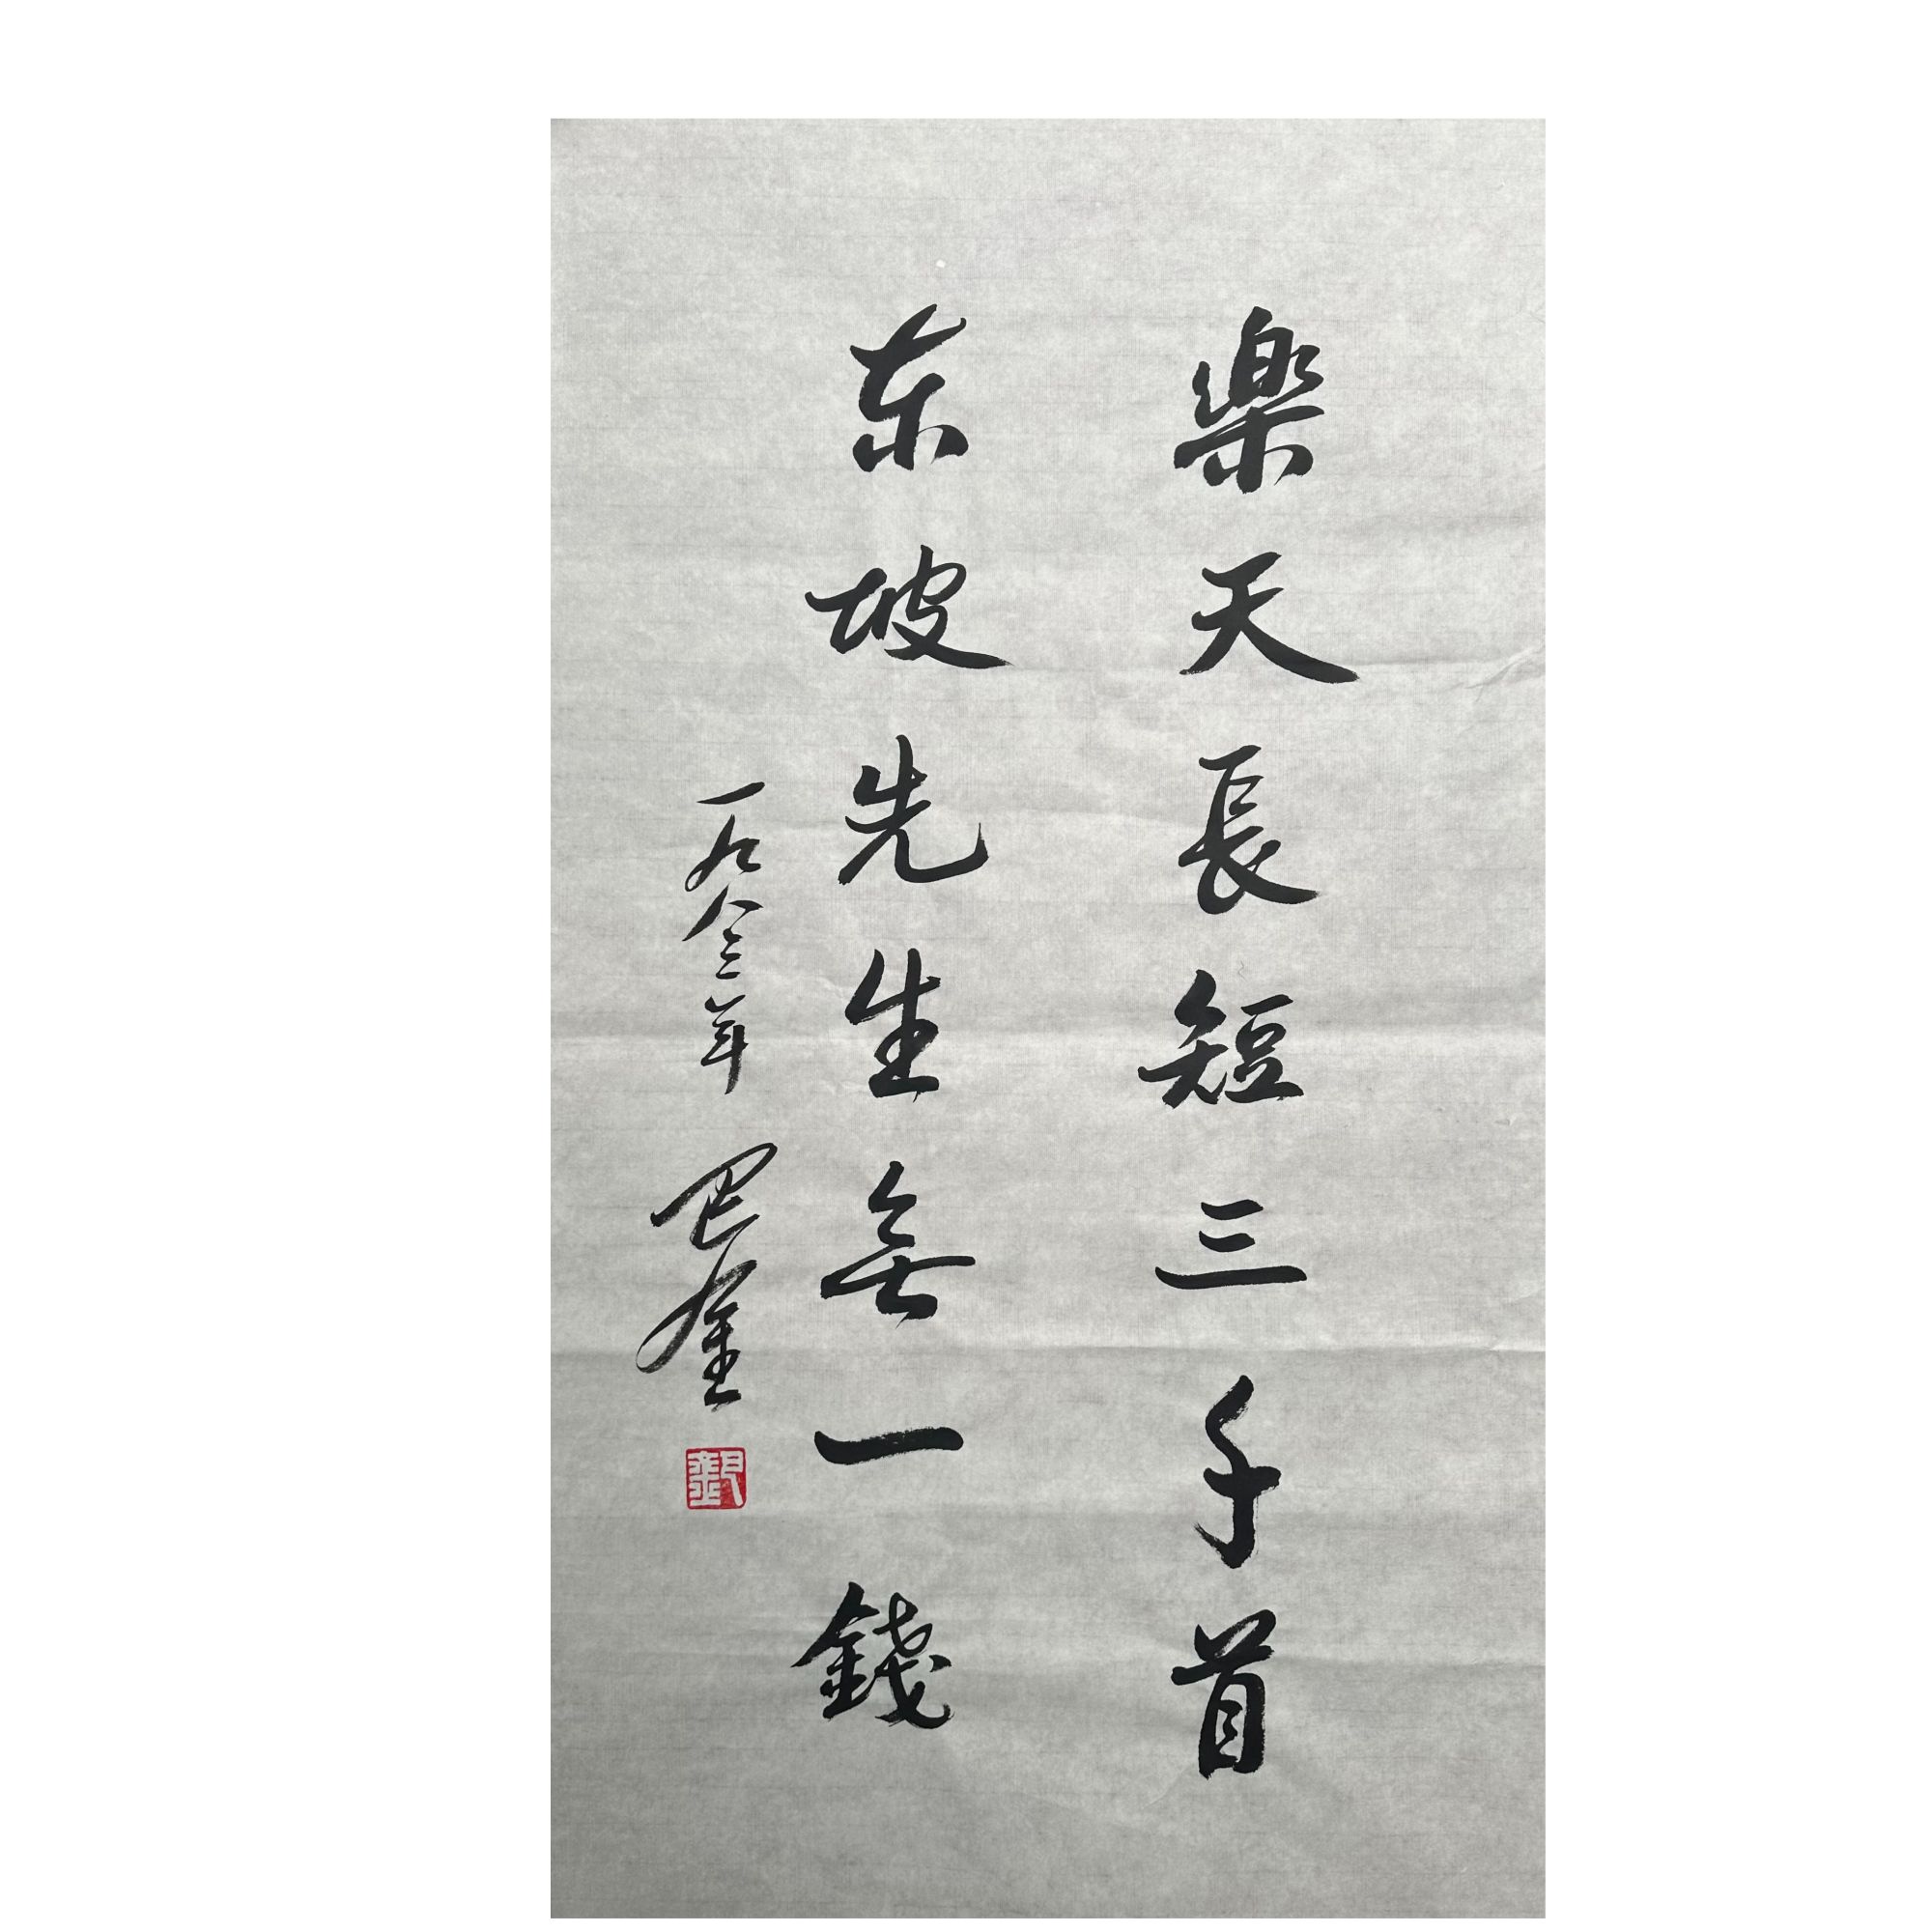 樂天長短三千首
东坡先生無一錢
一九八三年 巴金